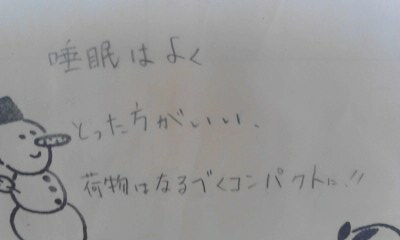 睡眠はよく
とった方がいい、
荷物はなるべくコンパクトに!!